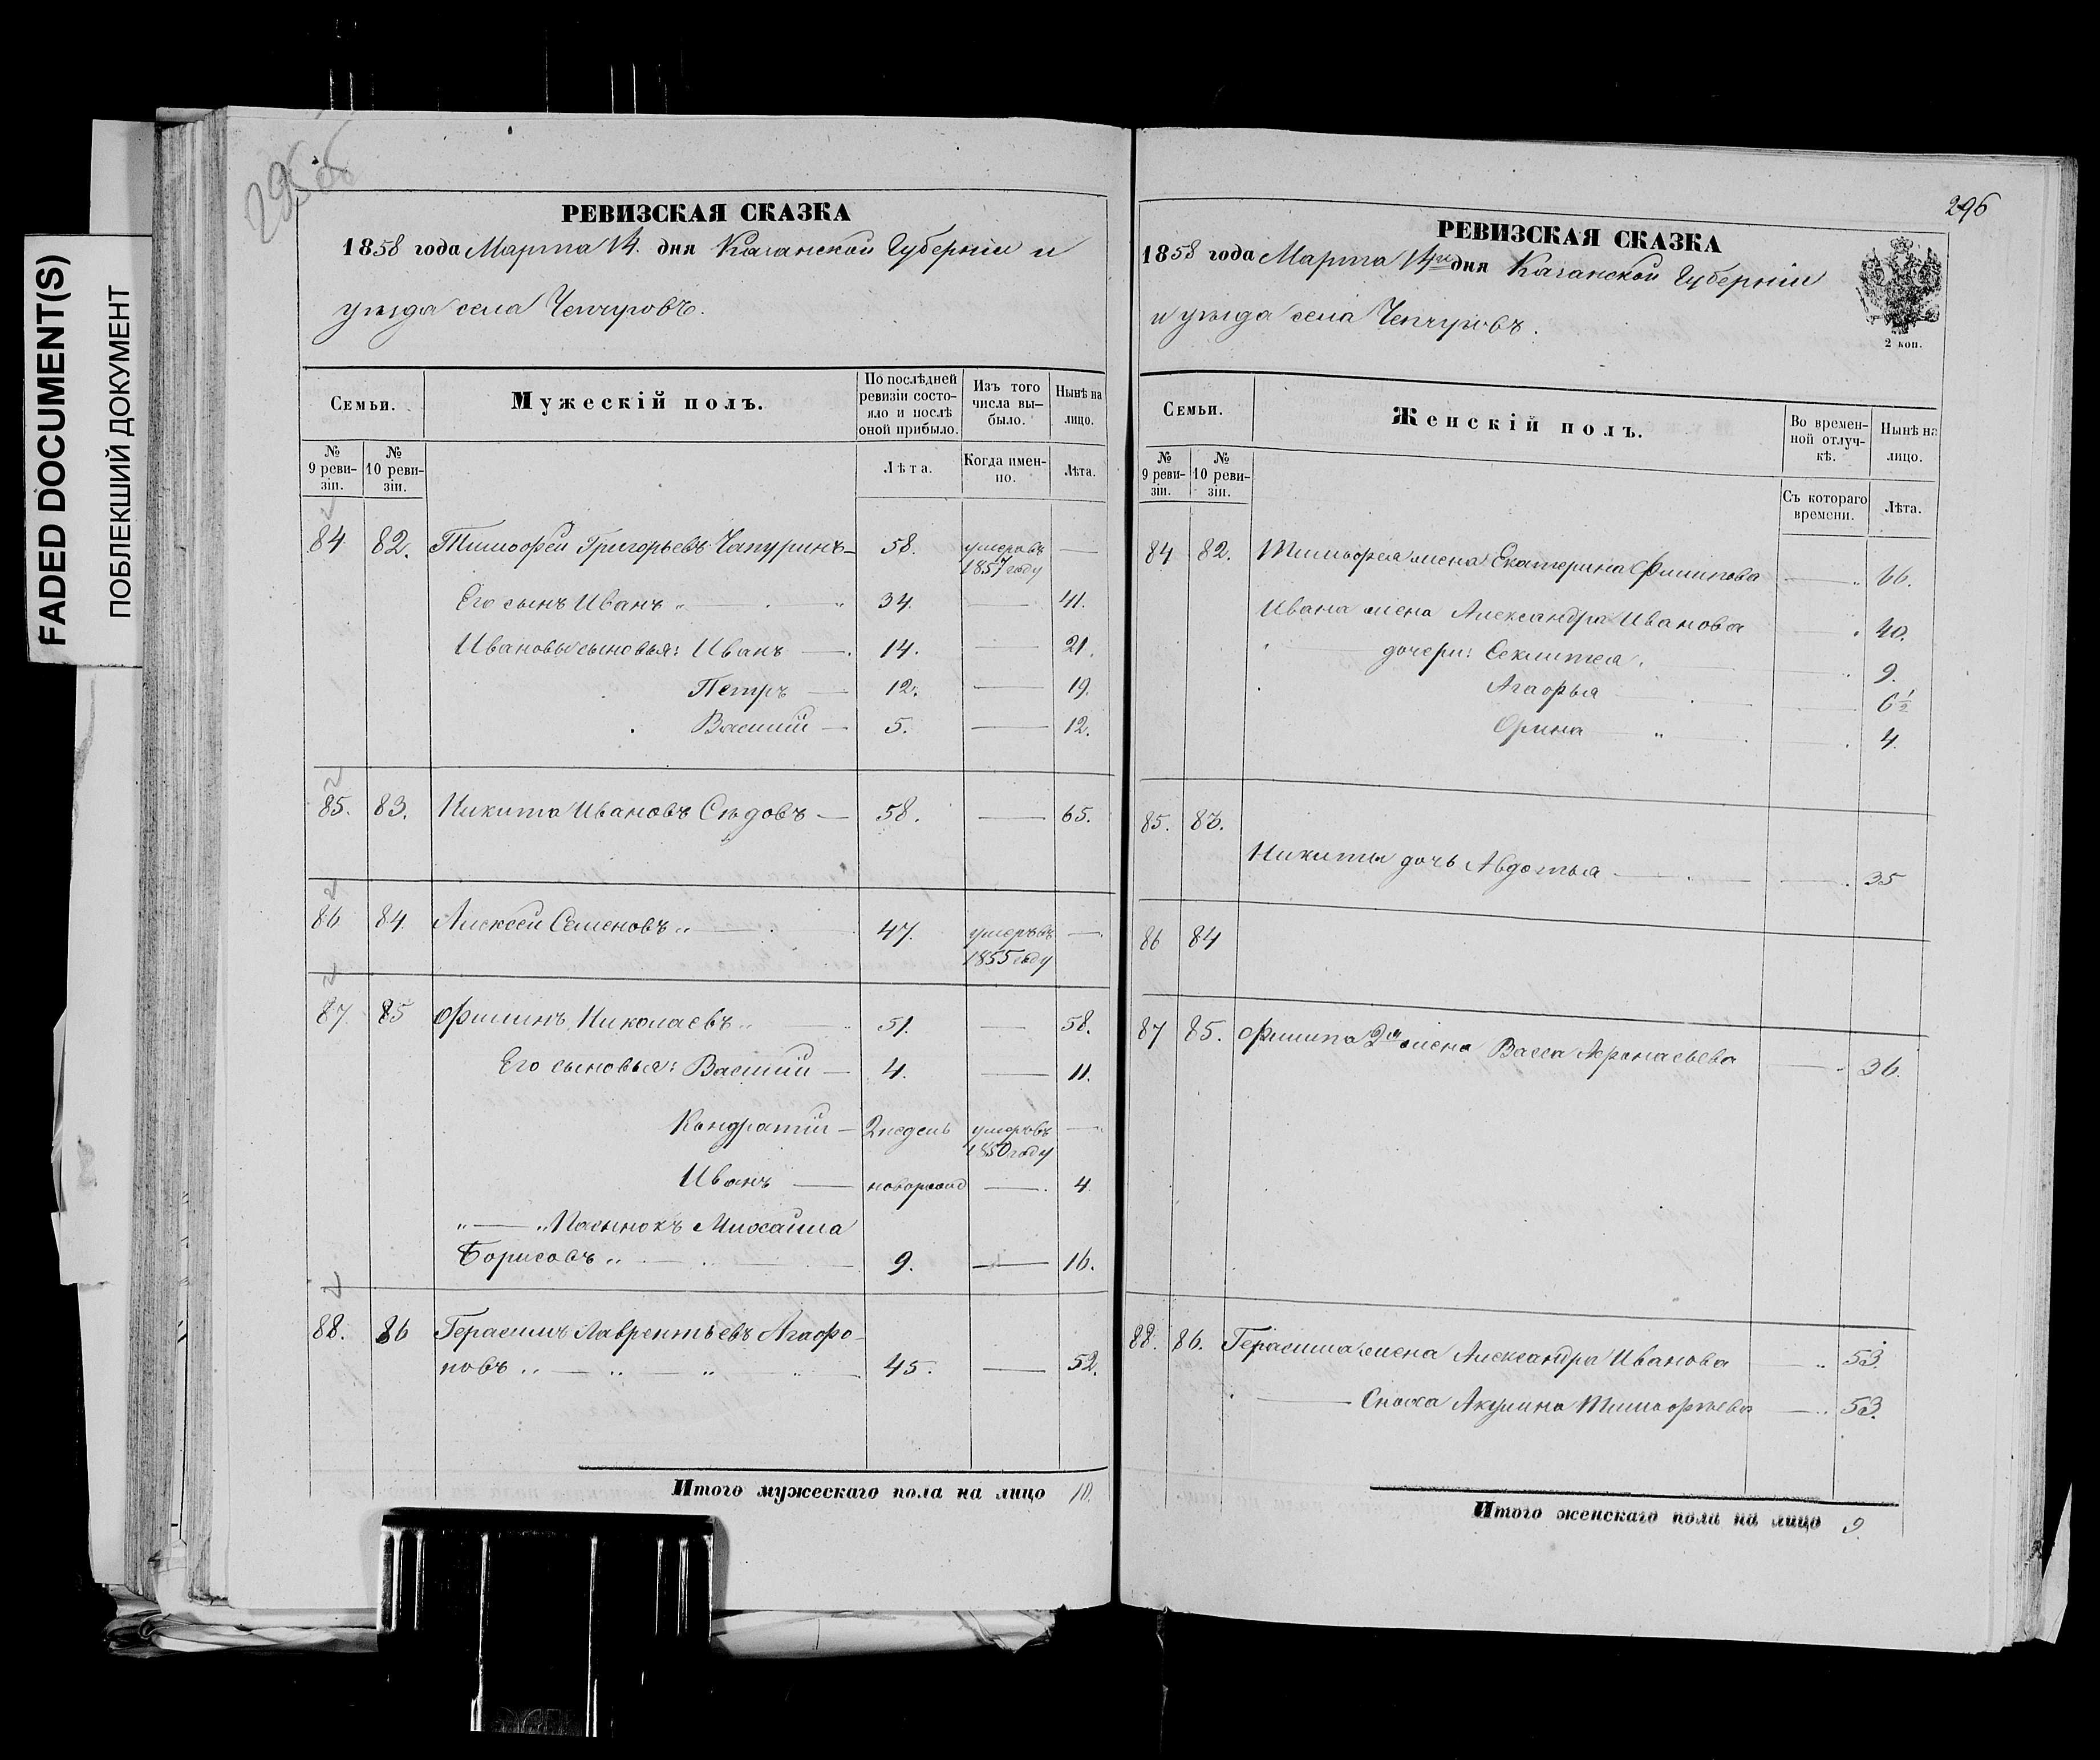 FADED DOCUMENT(S)
ПОБЛЕКШИЙ ДОКУМЕНТ
295 об
РЕВИЗСКАЯ СКАЗКА
1858 года Марта 14. дня Казанской Губерніи и
уѣзда села Чепчуговъ.
Семьи.
Мужескій полъ.
По послѣдней ревизіи состояло и послѣ оной прибыло.
Изъ того числа выбыло.
Нынѣ на лицо.
№ 9 ревизіи.
№ 10 ревизіи.
Лѣта.
Когда именно.
Лѣта.
84 82. Тимофей Григорьевъ Чапуринъ — 58. умеръ въ 1857 году —
Его сынъ Иванъ „ — „ 34. — 41.
Ивановы сыновья: Иванъ — 14. — 21.
Петръ — 12. — 19.
Василій — 5. — 12.
85. 83. Никита Ивановъ Сѣдовъ — 58. — 65.
86 84. Алексей Семеновъ „ — 47. умеръ въ 1855 году —
87 85 Филипъ Николаевъ „ — 51. — 58.
Его сыновья: Василій — 4. — 11.
Кондратій — 2 недель умеръ въ 1850 году —
Иванъ — новорожд — 4
„ — „ Пасынокъ Михайла
Борисовъ „ — 9. — 16.
88. 86 Герасимъ Лаврентьевъ Агафо-
новъ „ — „ — „ 45. — 52.
Итого мужескаго пола на лицо 10.
296
РЕВИЗСКАЯ СКАЗКА
1858 года Марта 14го дня Казанской Губерніи
и уѣзда села Чепчуговъ.
2 коп.
Семьи.
Женскій полъ.
Во временной отлучкѣ.
Нынѣ на лицо.
№ 9 ревизіи.
№ 10 ревизіи.
Съ котораго времени.
Лѣта.
84 82. Тимофея жена Екатерина Филипова — „ 66.
Ивана жена Александра Иванова — 40.
дочери: Секлитея — 9.
Агафья — 6½
Орина — „ 4.
85. 83.
Никиты дочь Авдотья — 35
86 84
87 85. Филипа 2я жена Васса Афонасьева — 36.
88. 86. Герасима жена Александра Иванова — „ 53.
— Сноха Акулина Тимофеева — „ 53.
Итого женскаго пола на лицо 9.